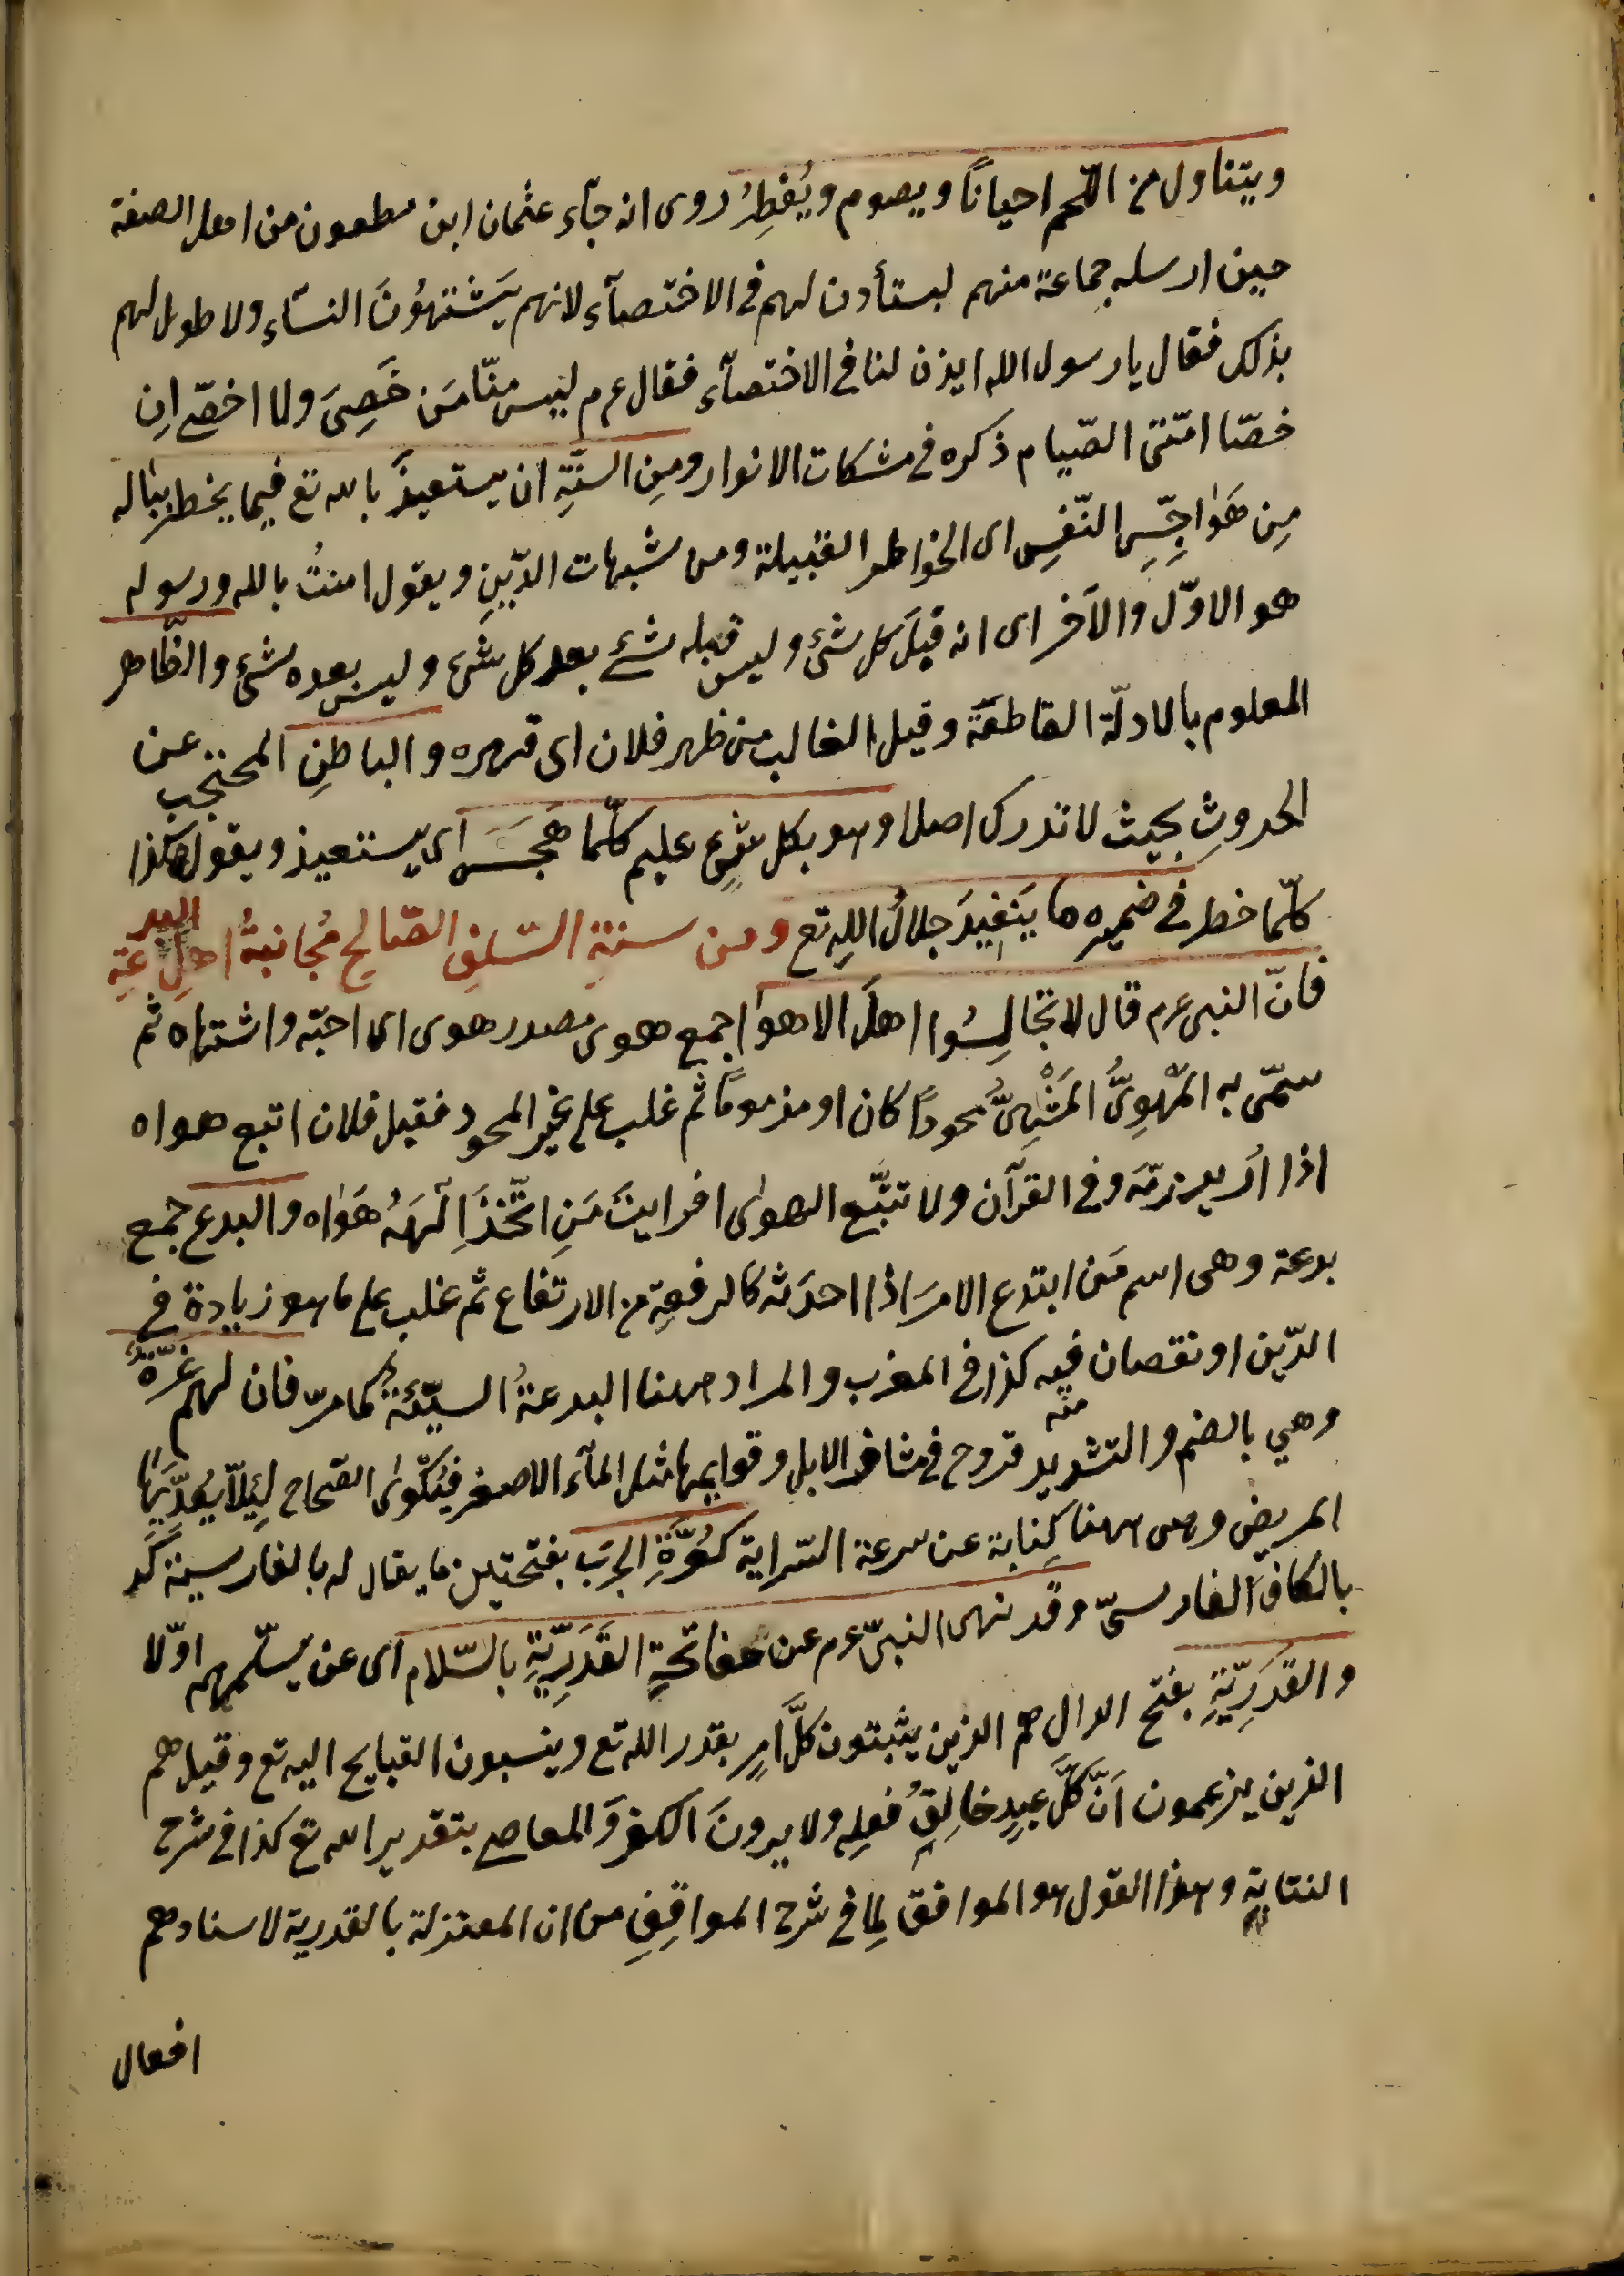 ويتناول من اللّحم احيانًا ويصوم ويُفطِرُ روى انه جآء عثمان ابن مظعون من اهل الصفة
حين ارسله جماعة منهم ليستأذن لهم فى الاختصآء لانهم يَشتهوُنَ النسآء ولا طول لهم
بذلك فقال يا رسول الله ايذن لنا فى الاختصآء فقال عم ليس منّا مَن خَصِىَ ولا اختصى اِن
خصّا امّتى الصّيام ذكره فى مشكات الانوار ومِن السنَّةِ ان يستعيذَ بالله تع فيما يخطر بباله
مِن هَوَاجِسِ النّفسِ اى الخواطر القبيلة ومن شبهات الدّينِ ويقول امنتُ بالله ورسوله
هو الاوّل والآخر اى انه قبلَ كل شئ وليس قبله شئ بعد كل شئ وليس بعده شئ والظّاهر
المعلوم بالادلّة القاطعَة وقيل الغالب من ظهر فلان اى قهره والباطنِ المحتجب عن
الحدوثِ بحيث لا تدرك اصلا وهو بكل شئٍ عليم كلّما هَجَسَ اى يستعيذ ويقول هكذا
كلّما خطر فى ضميره ما ينفيدَ جلالُ الله تع ومن سنةِ السّلفِ الصّالحِ مُجانبةُ اهلِ البدعةِ
فانّ النبى عم قال لا تجالِسُوا اهلَ الاهوا جمع هوى مصدر هوى اى احبّه واشتهاه ثم
سمّى به المَهوِىُّ المَشْتهىُّ محمودًا كان او مذمومًا ثم غلب على غير المحمود فقيل فلان اتبع هواه
اذا اُريد ذمّه وفى القرآن ولا تتبّع الهوى افرايتَ مَنِ اتّخذَ اِلَهَهُ هَوَاه والبدع جمع
بدعة وهى اسم مَن ابتدع الامرَ اذا احدَثه كالرفعة من الارتفاع ثم غلب على ما هو زيادة فى
الدّين او نقصان فيه كذا فى المغرب والمراد ههنا البدعةُ السيّئةُ كما مرّ فان لهم عُرّةً
وهي بالضم والتشديد قروح فى مشافر الابل وقوايمها مثل المآء الاصفر فيُكوٰى الصّحاح لِئلّا يُعدّيَها
المريض وهى ههنا كِناية عن سرعة السّراية كعُرَّةِ الجرَب بفتحتين ما يقال له بالفارسية كَر
بالكاف الفارسىّ وقد نهى النبىّ عم عن مفاتحةِ القَدَرِيّةِ بالسّلام اى عن يسلّمهم اوّلا
والقَدَرِيّةِ بفتح الدال هم الذين يثبتون كلَّ امرٍ بقدر الله تع وينسبون القبايح اليه تع وقيل هم
الذين يزعمون اَنّ كلَّ عبدٍ خالِقُ فعلِه ولا يرونَ الكفرَ والمعاصى بتقدير الله تع كذا فى شرح
النقايةِ وهذا القول هو الموافق لِما فى شرح المواقِفِ من ان المعتزلة بالقدرية لاسنادهم
افعال